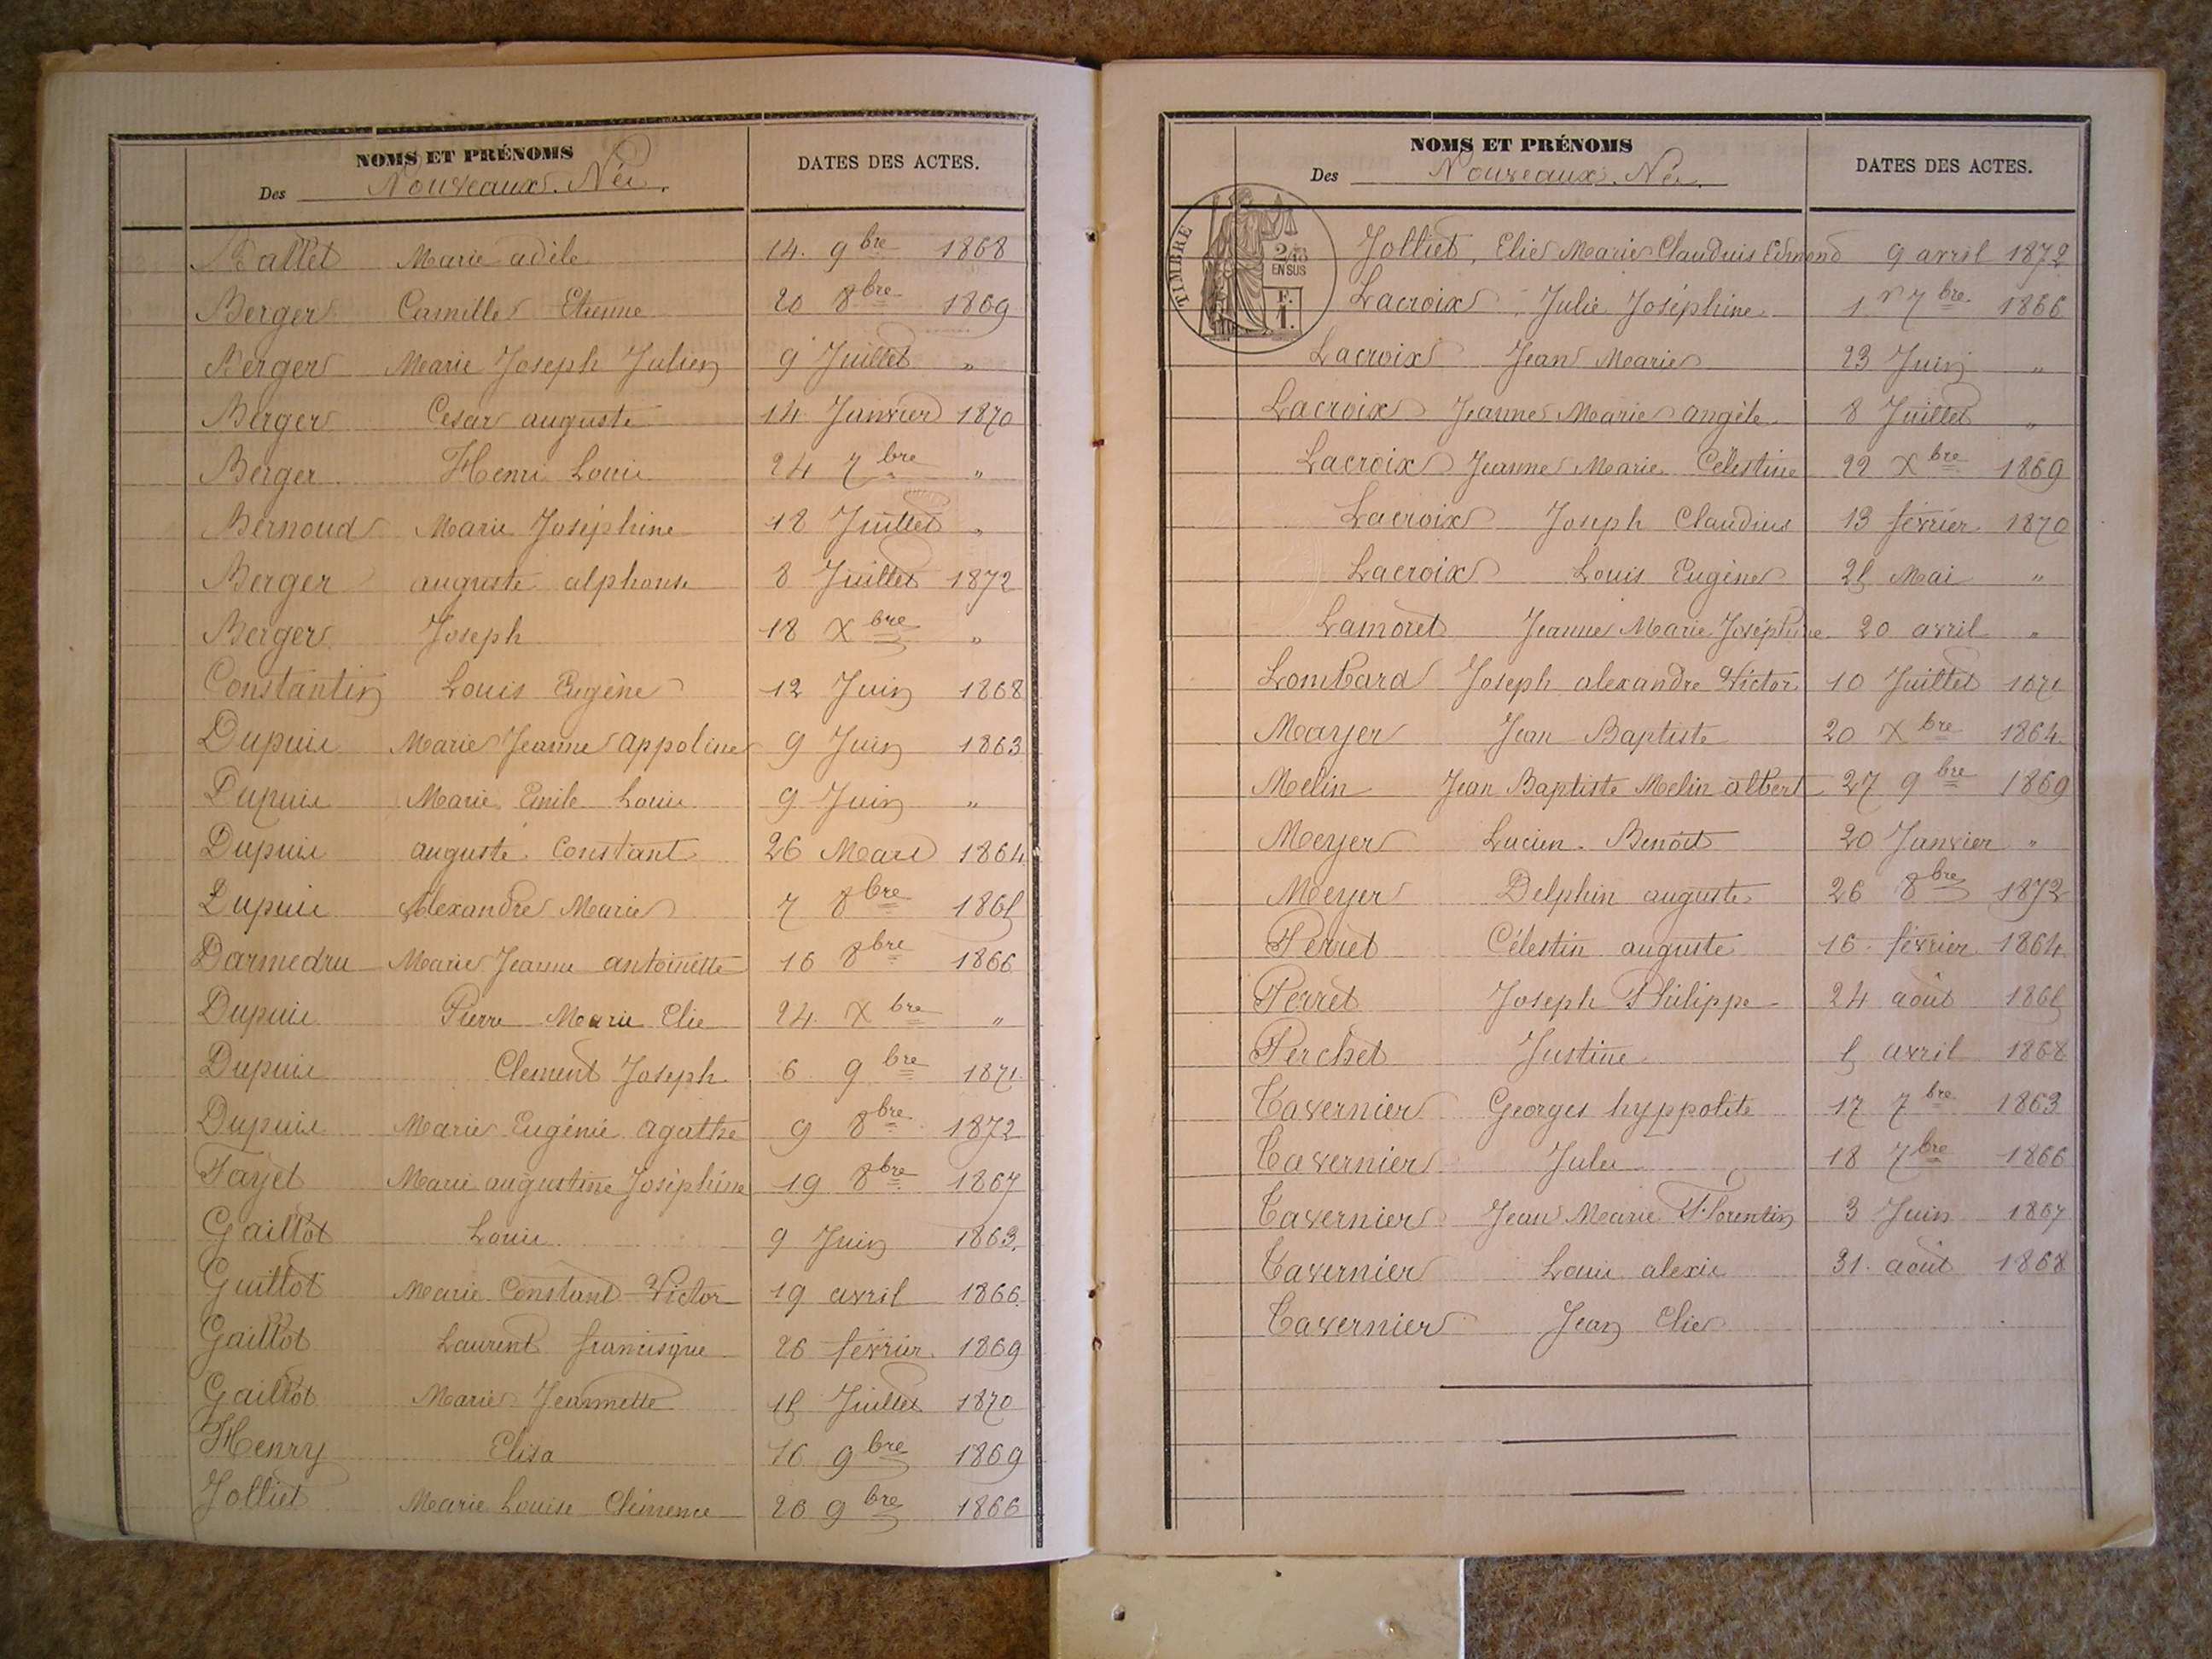 NOMS ET PRÉNOMS
Des Nouveaux Nés.
DATES DES ACTES.
Ballet Marie adèle 14. 9bre 1868
Berger Camille Etienne 20 8bre 1869
Berger Marie Joseph Julien 9 Juillet "
Berger Cesar auguste 14 Janvier 1870
Berger Henri Louis 24 7bre "
Bernoud Marie Joséphine 18 Juillet "
Berger auguste alphonse 8 Juillet 1872
Berger Joseph 18 Xbre "
Constantin Louis Eugène 12 Juin 1868
Dupuis Marie Jeanne Appoline 9 Juin 1863
Dupuis Marie Emile Louis 9 Juin "
Dupuis auguste Constant 26 Mars 1864
Dupuis Alexandre Marie 7 8bre 1865
Darmedru Marie Jeanne antoinette 16 8bre 1866
Dupuis Pierre Marie Elie 24 Xbre "
Dupuis Clement Joseph 6 9bre 1871
Dupuis Marie Eugénie Agathe 9 8bre 1872
Fayet Marie augustine Joséphine 19 8bre 1867
Gaillot Louis 9 Juin 1863
Guillot Marie Constant Victor 19 avril 1866
Gaillot Laurent francisque 26 février 1869
Gaillot Marie Jeannette 15 Juillet 1870
Henry Elisa 16 9bre 1869
Jolliet Marie Louise Clémence 20 9bre 1866
NOMS ET PRÉNOMS
Des Nouveaux Nés.
DATES DES ACTES.
TIMBRE
2/10
EN SUS
F.
1.
Jolliet, Elie Marie Claudius Edmond 9 avril 1872
Lacroix Julie Joséphine 1r 7bre 1866
Lacroix Jean Marie 23 Juin "
Lacroix Jeanne Marie angèle 8 Juillet "
Lacroix Jeanne Marie Célestine 22 Xbre 1869
Lacroix Joseph Claudius 13 février 1870
Lacroix Louis Eugène 25 Mai "
Lamoret Jeanne Marie Joséphine 20 avril "
Lombard Joseph alexandre Victor 10 Juillet 1871
Mayer Jean Baptiste 20 Xbre 1864
Melin Jean Baptiste Melin albert 27 9bre 1869
Meyer Lucien Benoit 20 Janvier "
Meyer Delphin auguste 26 8bre 1872
Perret Célestin auguste 16 février 1864
Perret Joseph Philippe 24 août 1865
Perchet Justine 5 avril 1868
Tavernier Georges hyppolite 17 7bre 1863
Tavernier Jules 18 7bre 1866
Tavernier Jean Marie Florentin 3 Juin 1867
Tavernier Louis alexis 31 août 1868
Tavernier Jean Elie